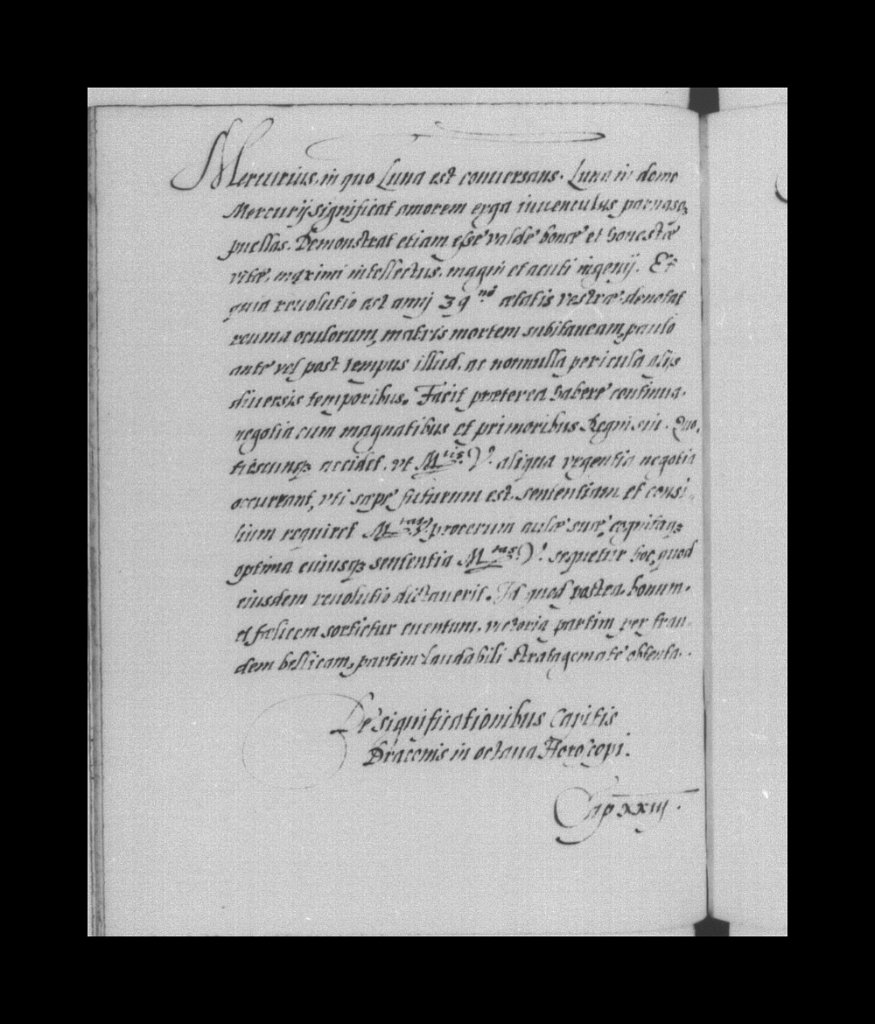 Mercurius, in quo Luna est conuersans. Luna in domo
Mercurij significat amorem erga iuuenculas paruasq;
puellas. Demonstrat etiam esse valde bonæ et honestæ
vitæ, maximi intellectus, magni et acuti ingenij. Et
quia reuolutio est anni 39.nő ætatis vestræ, denotat
reuma oculorum, matris mortem subitaneam, paulo
ante vel post tempus illud, ac nonnulla pericula alijs
diuersis temporibus. Facit præterea habere continua
negotia cum magnatibus et primoribus Regni sui. Quo,
tiescunq; accidet, vt M.tis V. aliqua vrgentia negotia
occurrant, vti sæpe futurum est, sententiam et consi-
lium requiret M.tas V. procerum aulæ suæ,
optima cuiusq; sententia M.tas V. sequetur hoc, quod
eiusdem reuolutio dictauerit. Id quod postea bonum
et fælicem sortietur euentum, victoria partim per frau-
dem bellicam, partim laudabili stratagemate obtenta.
De significationibus Capitis
Draconis in octaua Horoscopi.
Cap xxiij.